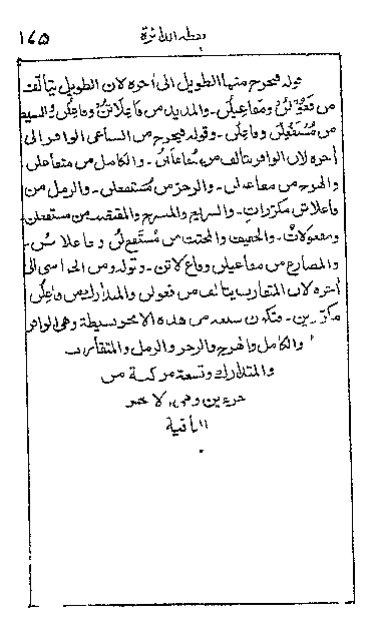 نقطة الدائرة ١٤٥
قوله فيخرج منها الطويل الى آخره لان الطويل يتألف
من فَعُولُنْ ومَفاعيلُن ـ والمديد من فاعِلاتُنْ وفاعِلُن والبسيط
من مُسْتَفْعِلُن وفاعلُن ـ وقوله فيخرج من السباعى الوافر الى
آخره لان الوافر يتألف من مُفاعَلَتُن ـ والكامل من متفاعلن
والهزج من مفاعيلن ـ والرجز من مُستفعلن ـ والرمل من
فاعلاتن مكررات ـ والسريع والمنسرح والمقتضب من مستفعلن
ومفعولاتُ ـ والخفيف والمجتث من مُستَفعِ لن وفاعلاتن ـ
والمضارع من مفاعيلن وفاعِ لاتن ـ وقوله ومن الخماسى الى
آخره لان المتقارب يتألف من فعولن والمتدارك من فاعِلُن
مكررين ـ فتكون سبعة من هذه الابحر بسيطة وهى الوافر
والكامل والهزج والرجز والرمل والمتقارب
والمتدارك وتسعة مركبة من
جزءين وهى الابحر
الباقية